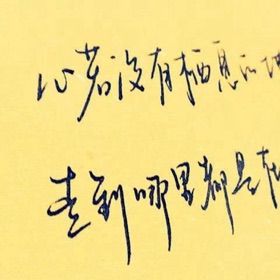 心若没有栖息的地
走到哪里都是在